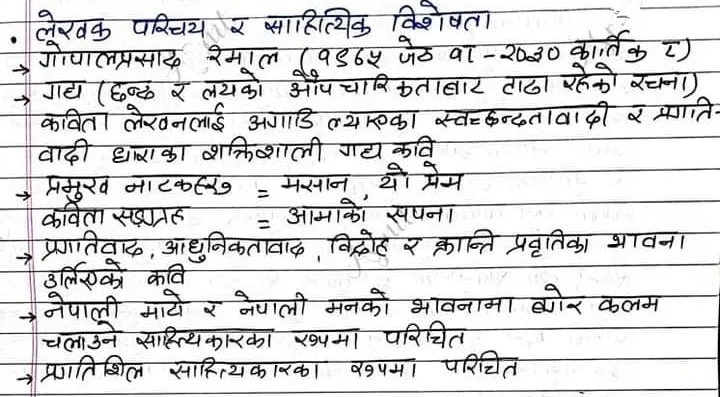 • लेखक परिचय र साहित्यिक विशेषता
→ गोपालप्रसाद रिमाल (१९७५ जेठ ७१ - २०३० कार्तिक ८)
→ गद्य (छन्द र लयको औपचारिकताबाट टाढा रहेको रचना)
कविता लेखनलाई अगाडि ल्याएका स्वच्छन्दतावादी र प्रगति-
वादी धाराका शक्तिशाली गद्य कवि
→ प्रमुख नाटकहरू = मसान, यो प्रेम
कविता सङ्ग्रह = आमाको सपना
→ प्रगतिवाद, आधुनिकतावाद, विद्रोह र क्रान्ति प्रवृतिका भावना
उर्लिएको कवि
→ नेपाली माटो र नेपाली मनको भावनामा ब्योर कलम
चलाउने साहित्यकारका रूपमा परिचित
→ प्रगतिशिल साहित्यकारका रूपमा परिचित